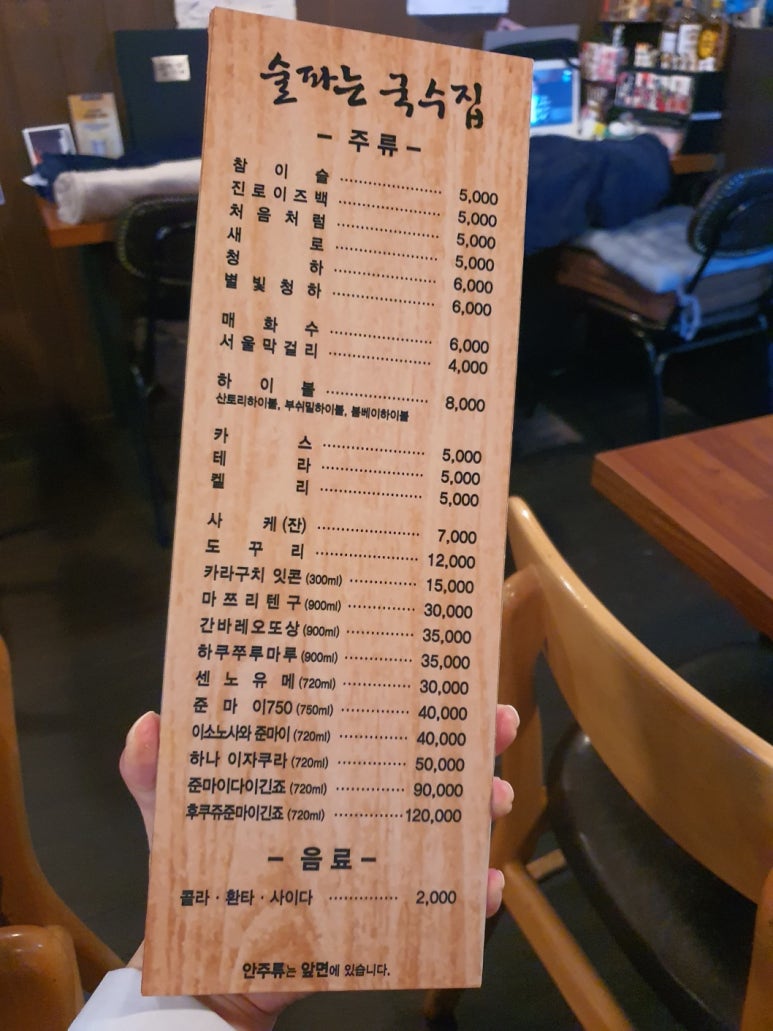 술파는 국수집
- 주류 -
참이슬 5,000
진로이즈백 5,000
처음처럼 5,000
새로 5,000
청하 6,000
별빛청하 6,000
매화수 6,000
서울막걸리 4,000
하이볼 8,000
산토리하이볼, 부쉬밀하이볼, 봄베이하이볼
카스 5,000
테라 5,000
켈리 5,000
사케(잔) 7,000
도꾸리 12,000
카라구치 잇콘 (300ml) 15,000
마쯔리텐구 (900ml) 30,000
간바레오또상 (900ml) 35,000
하쿠쭈루마루 (900ml) 35,000
센노유메 (720ml) 30,000
준마이750 (750ml) 40,000
이소노사와 준마이 (720ml) 40,000
하나 이자쿠라 (720ml) 50,000
준마이다이긴죠 (720ml) 90,000
후쿠쥬준마이긴죠 (720ml) 120,000
- 음료 -
콜라 · 환타 · 사이다 2,000
안주류는 앞면에 있습니다.